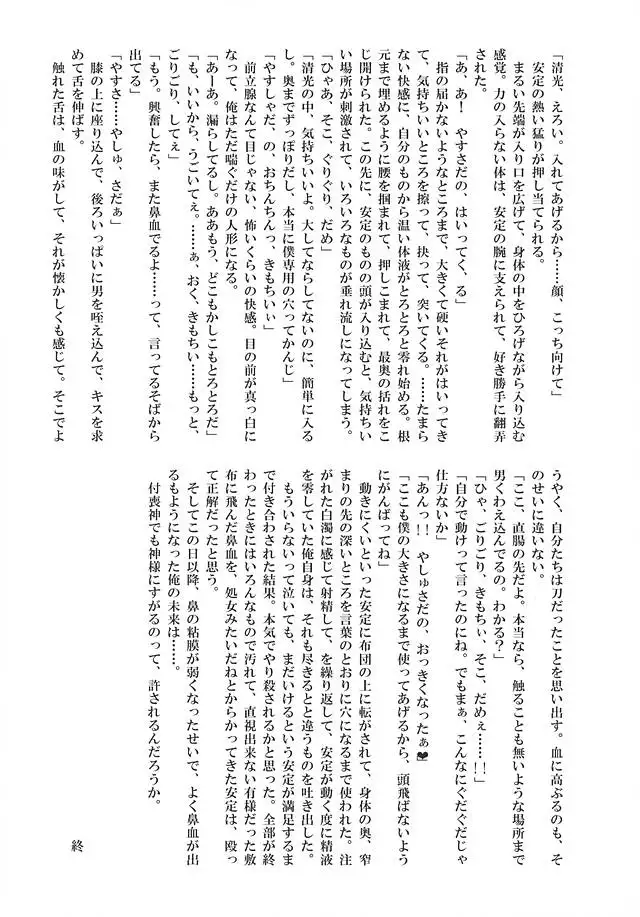 「清光、えろい。入れてあげるから……顔、こっち向けて」
　安定の熱い猛りが押し当てられる。
　まるい先端が入り口を広げて、身体の中をひろげながら入り込む
感覚。力の入らない体は、安定の腕に支えられて、好き勝手に翻弄
された。
「あ、あ！　やすさだの、はいってく、る」
　指の届かないようなところまで、大きくて硬いそれがはいってき
て、気持ちいいところを擦って、抉って、突いてくる。……たまら
ない快感に、自分のものから温い体液がとろとろと零れ始める。根
元まで埋めるように腰を掴まれて、押しこまれて、最奥の括れをこ
じ開けられた。この先に、安定のものの頭が入り込むと、気持ちい
い場所が刺激されて、いろいろなものが垂れ流しになってしまう。
「ひゃあ、そこ、ぐりぐり、だめ」
「清光の中、気持ちいいよ。大してならしてないのに、簡単に入る
し。奥までずっぽりだし、本当に僕専用の穴ってかんじ」
「やすしゃだ、の、おちんちんっ、きもちいぃ」
　前立腺なんて目じゃない、怖いくらいの快感。目の前が真っ白に
なって、俺はただ喘ぐだけの人形になる。
「あーあ。漏らしてるし。ああもう、どこもかしこもとろとろだ」
「も、いいから、うごいてぇ。……ぁ、おく、きもちい……もっと、
ごりごり、してぇ」
「もう。興奮したら、また鼻血でるよ……って、言ってるそばから
出てる」
「やすさ……やしゅ、さだぁ」
　膝の上に座り込んで、後ろいっぱいに男を咥え込んで、キスを求
めて舌を伸ばす。
　触れた舌は、血の味がして、それが懐かしくも感じて。そこでよ
うやく、自分たちは刀だったことを思い出す。血に高ぶるのも、そ
のせいに違いない。
「ここ、直腸の先だよ。本当なら、触ることも無いような場所まで
男くわえ込んでるの。わかる？」
「ひゃ、ごりごり、きもちぃ、そこ、だめぇ……！！」
「自分で動けって言ったのにね。でもまぁ、こんなにぐだぐだじゃ
仕方ないか」
「あんっ！！　やしゅさだの、おっきくなったぁ♥」
「ここも僕の大きさになるまで使ってあげるから、頭飛ばないよう
にがんばってね」
　動きにくいといった安定に布団の上に転がされて、身体の奥、窄
まりの先の深いところを言葉のとおりに穴になるまで使われた。注
がれた白濁に感じて射精して、を繰り返して、安定が動く度に精液
を零していた俺自身は、それも尽きると違うものを吐き出した。
　もういらないって泣いても、まだいけるという安定が満足するま
で付き合わされた結果。本気でやり殺されるかと思った。全部が終
わったときにはいろんなもので汚れて、直視出来ない有様だった敷
布に飛んだ鼻血を、処女みたいだねとからかってきた安定は、殴っ
て正解だったと思う。
　そしてこの日以降、鼻の粘膜が弱くなったせいで、よく鼻血が出
るもようになった俺の未来は……。
　付喪神でも神様にすがるのって、許されるんだろうか。
終